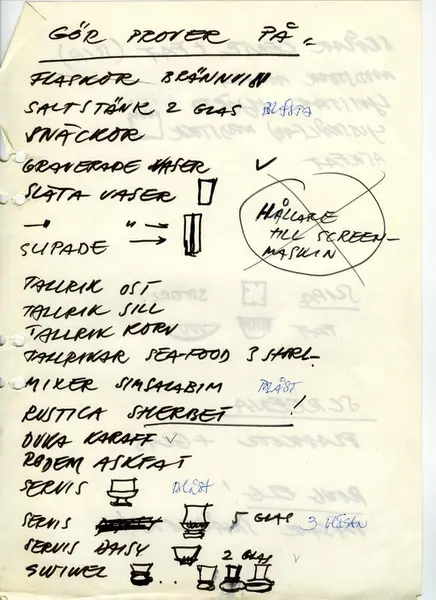 GÖR PROVER PÅ.
FLASKOR BRÄNNVIN
SALTSTÄNK 2 GLAS BLÅSTA
SNÄCKOR
GRAVERADE VASER ✓
SLÄTA VASER
HÅLLARE
TILL SCREEN-
MASKIN
—" "—
SLIPADE →
TALLRIK OST
TALLRIK SILL
TALLRIK KORV
TALLRIKAR SEAFOOD 3 STORL.
MIXER SIMSALABIM BLÅST
RUSTICA SHERBET !
DUKA KARAFF ✓
RODEM ASKFAT
SERVIS BLÅST
SERVIS 5 GLAS 3 BLÅSTA
SERVIS DAISY 2 GLAS ✓
SWIWEL